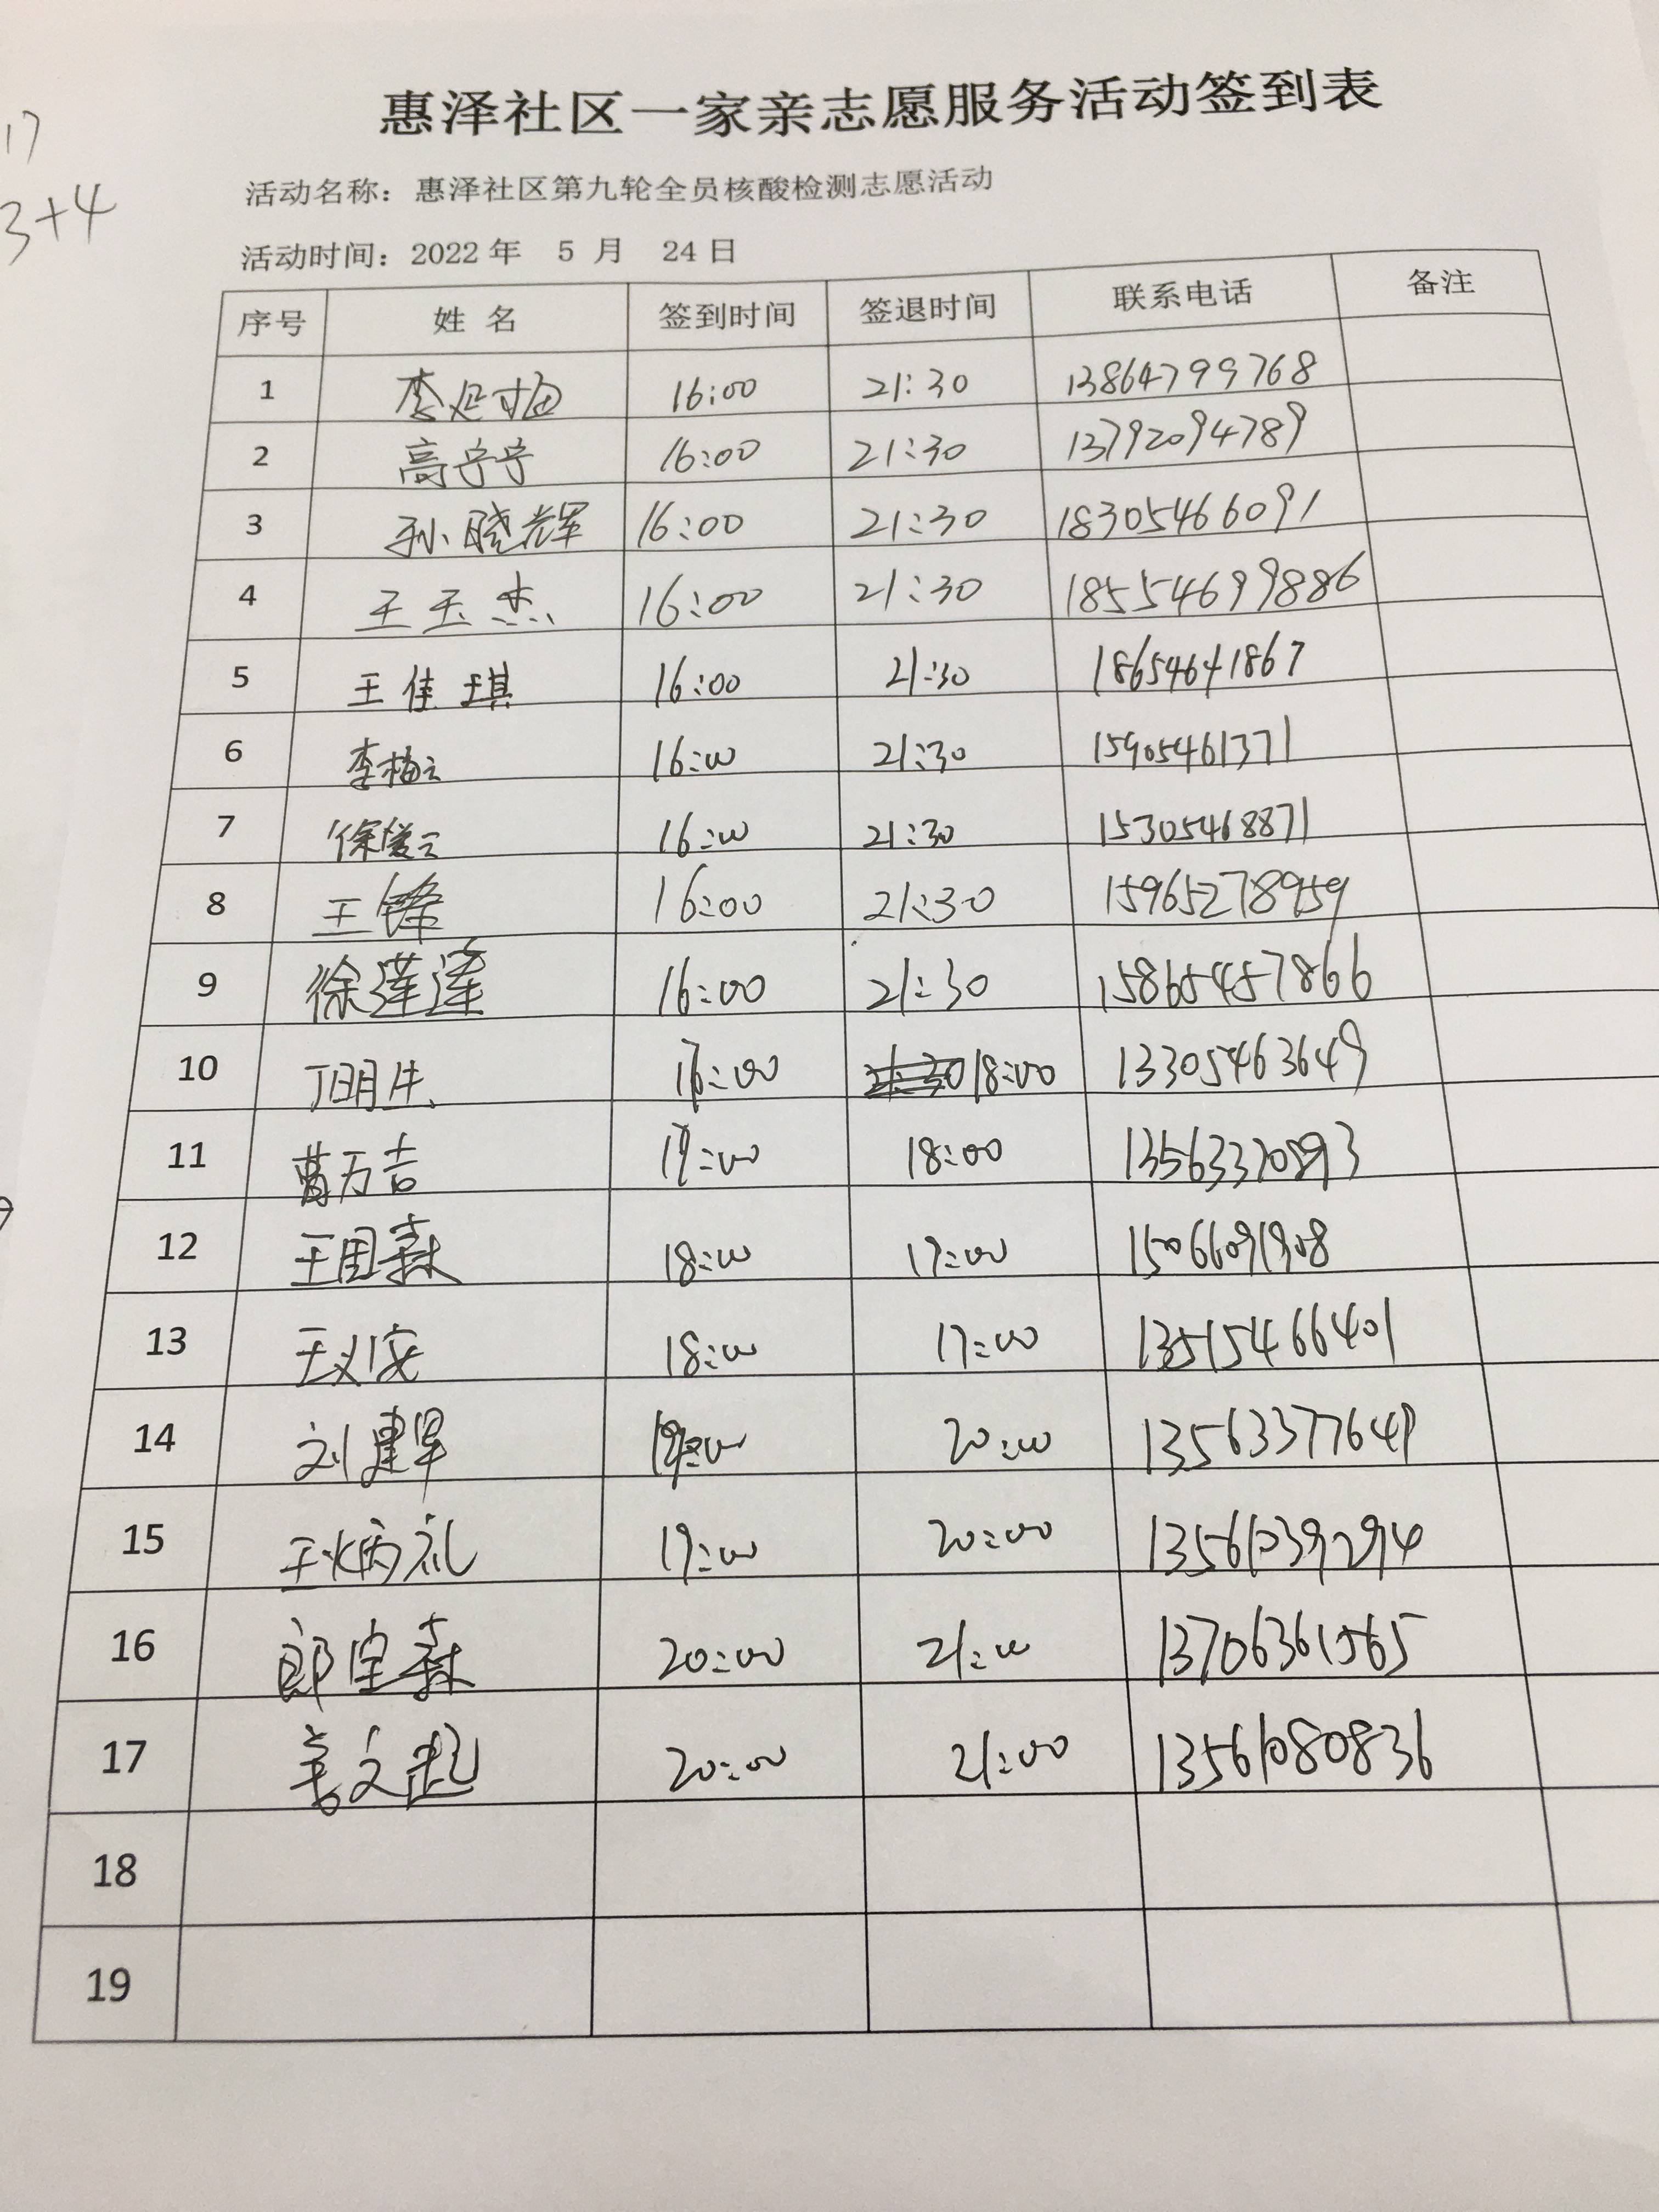 17
3+4
惠泽社区一家亲志愿服务活动签到表
活动名称：惠泽社区第九轮全员核酸检测志愿活动
活动时间：2022年 5月 24日
序号 姓名 签到时间 签退时间 联系电话 备注
1 李延梅 16:00 21:30 13864799768
2 高宁宁 16:00 21:30 13792094789
3 孙晓辉 16:00 21:30 18305466091
4 王玉杰 16:00 21:30 18554699886
5 王佳琪 16:00 21:30 18654641867
6 李梅云 16:00 21:30 15905461371
7 徐俊云 16:00 21:30 15305468871
8 王锋 16:00 21:30 15965278959
9 徐莲莲 16:00 21:30 15865457866
10 丁明生 16:00 18:00 13305463649
11 曹万吉 18:00
12 王国森 18:00 19:00 15066091908
13 王义安 18:00 17:00 13515466401
14 刘建军 20:00 13563377649
15 王炳礼 19:00 20:00 13561039294
16 郎宝森 20:00 21:00 13706361565
17 姜文起 20:00 21:00 13561080836
18
19